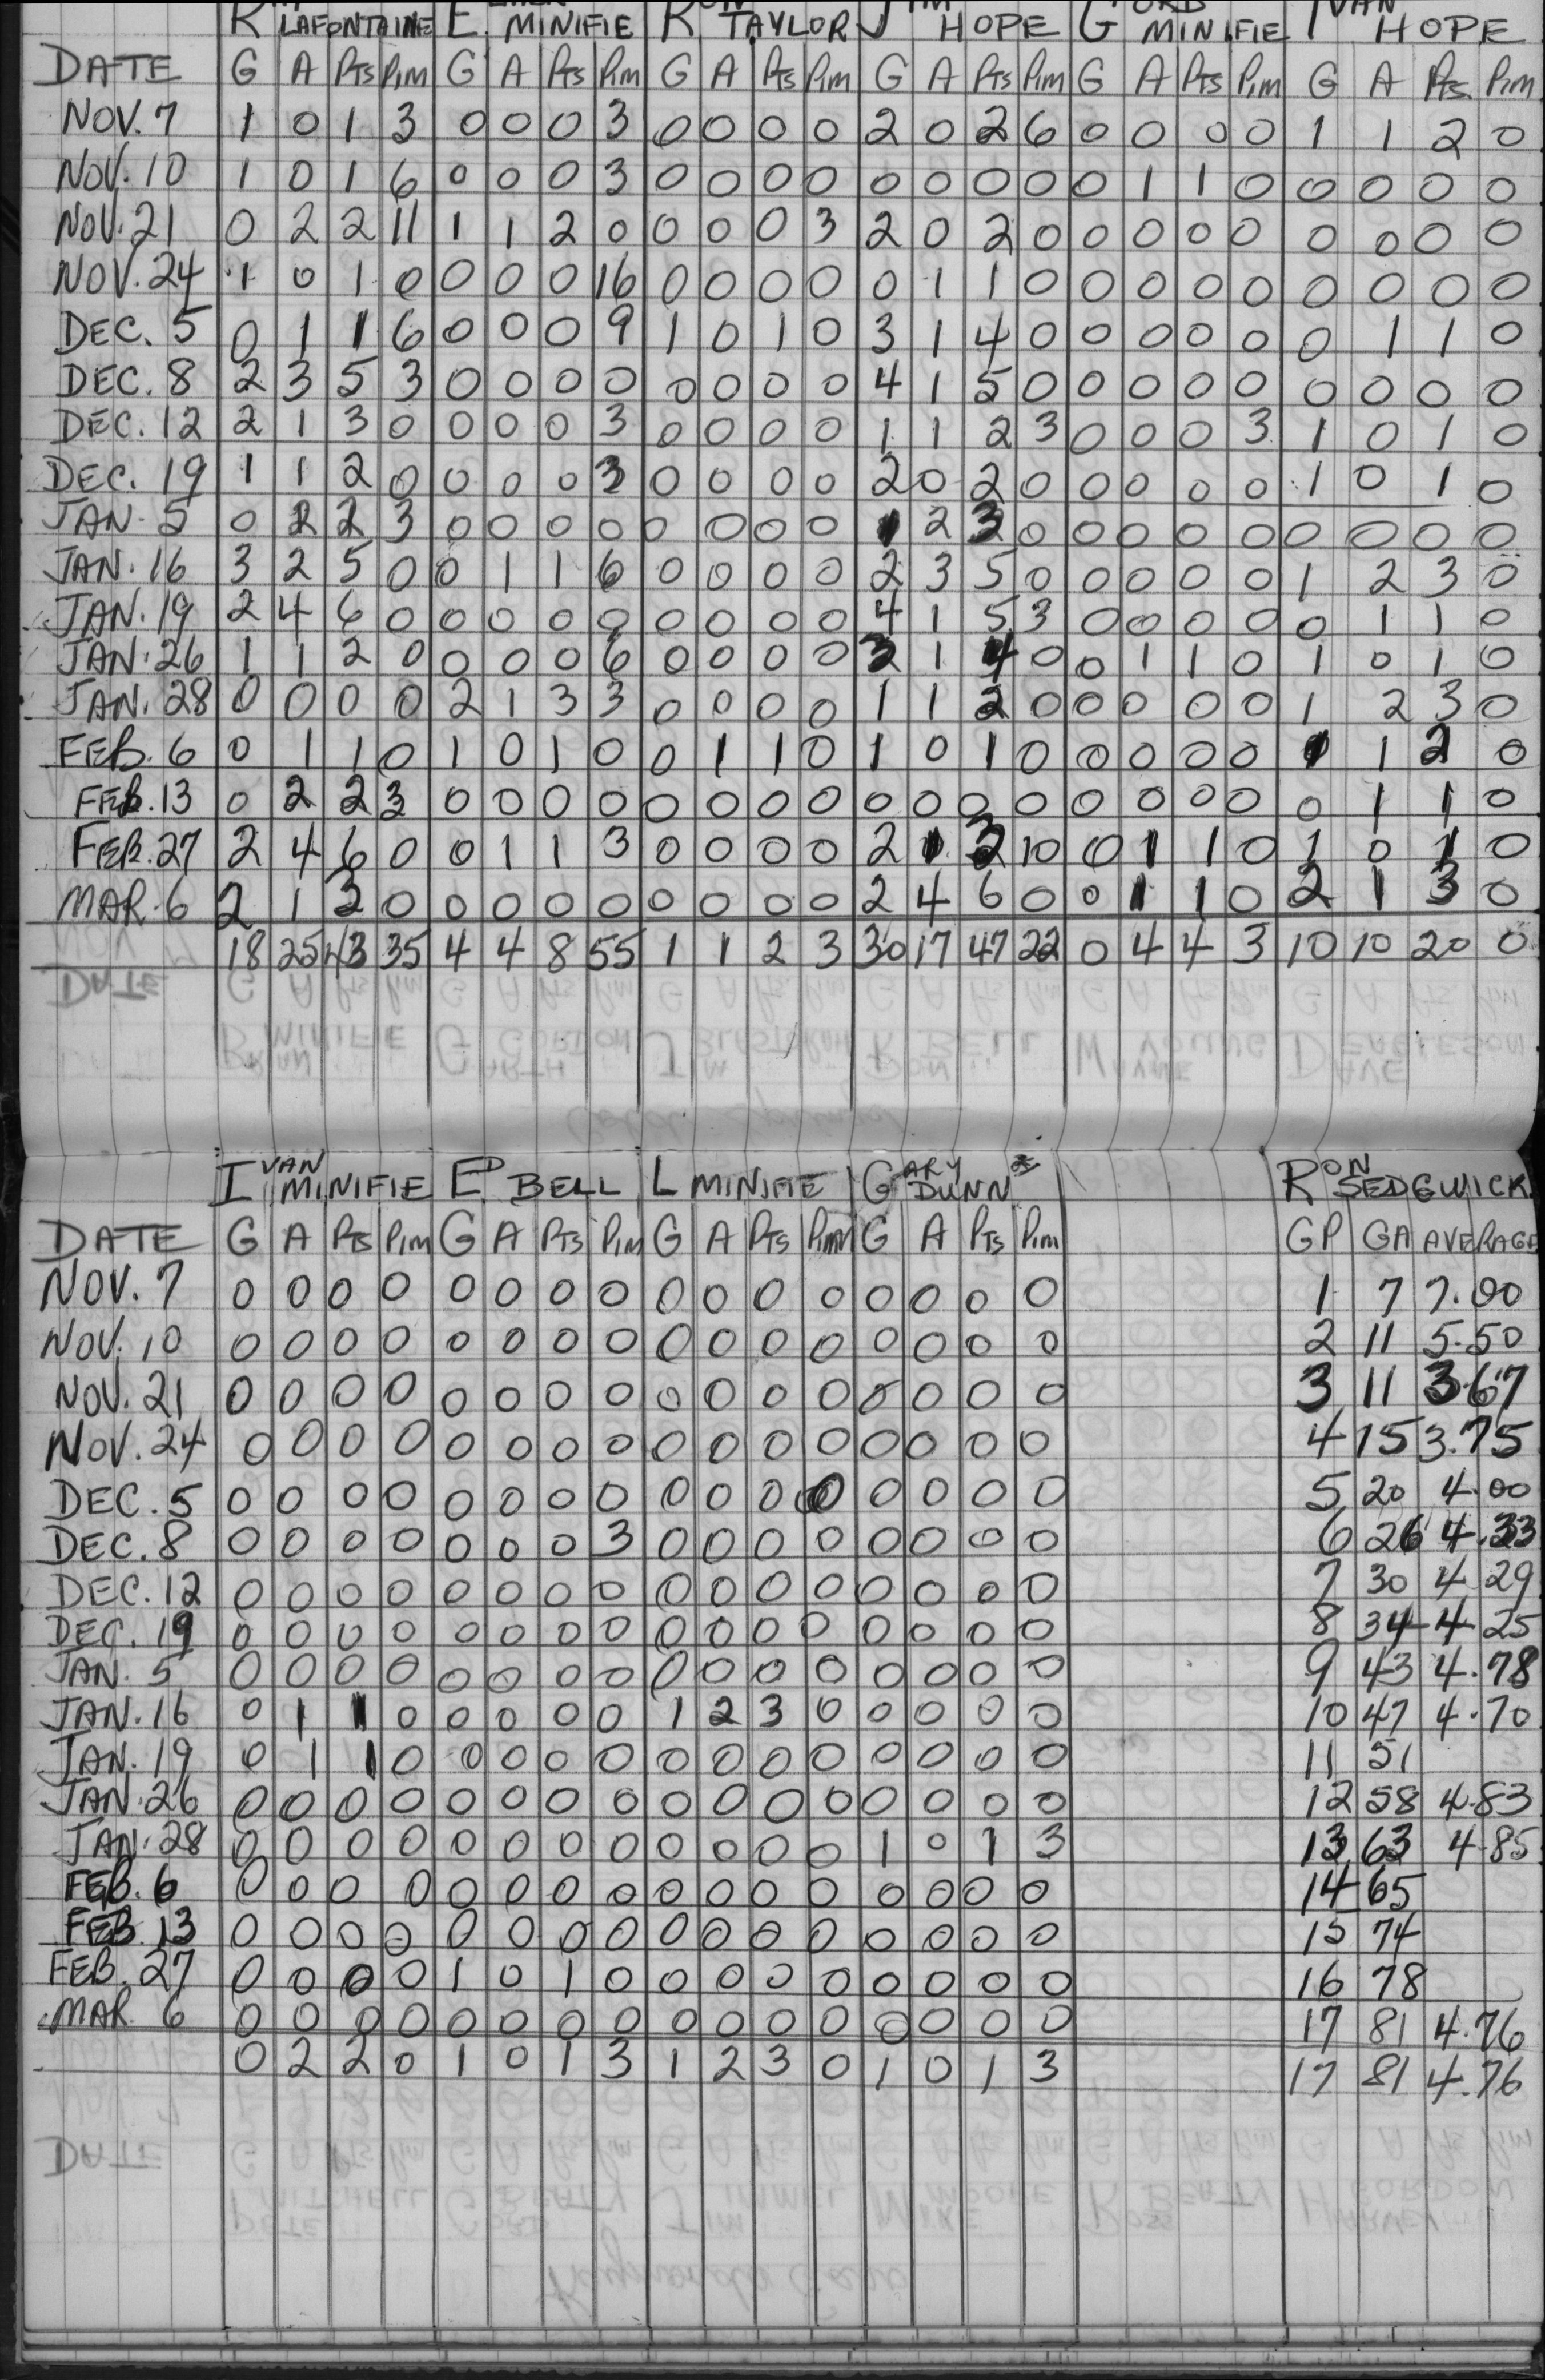 R LAFONTAINE E MINIFIE RON TAYLOR JIM HOPE GORD MINIFIE IVAN HOPE
DATE G A PTS PIM G A PTS PIM G A PTS PIM G A PTS PIM G A PTS PIM G A PTS. PIM
NOV. 7 1 0 1 3 0 0 0 3 0 0 0 0 2 0 2 6 0 0 0 0 1 1 2 0
NOV. 10 1 0 1 6 0 0 0 3 0 0 0 0 0 0 0 0 0 1 1 0 0 0 0 0
NOV. 21 0 2 2 11 1 1 2 0 0 0 0 3 2 0 2 0 0 0 0 0 0 0 0 0
NOV. 24 1 0 1 0 0 0 0 16 0 0 0 0 0 1 1 0 0 0 0 0 0 0 0 0
DEC. 5 0 1 1 6 0 0 0 9 1 0 1 0 3 1 4 0 0 0 0 0 0 1 1 0
DEC. 8 2 3 5 3 0 0 0 0 0 0 0 0 4 1 5 0 0 0 0 0 0 0 0 0
DEC. 12 2 1 3 0 0 0 0 3 0 0 0 0 1 1 2 3 0 0 0 3 1 0 1 0
DEC. 19 1 1 2 0 0 0 0 3 0 0 0 0 2 0 2 0 0 0 0 0 1 0 1 0
JAN. 5 0 2 2 3 0 0 0 0 0 0 0 0 1 2 3 0 0 0 0 0 0 0 0 0
JAN. 16 3 2 5 0 0 1 1 6 0 0 0 0 2 3 5 0 0 0 0 0 1 2 3 0
JAN. 19 2 4 6 0 0 0 0 0 0 0 0 0 4 1 5 3 0 0 0 0 0 1 1 0
JAN. 26 1 1 2 0 0 0 0 6 0 0 0 0 3 1 4 0 0 1 1 0 1 0 1 0
JAN. 28 0 0 0 0 2 1 3 3 0 0 0 0 1 1 2 0 0 0 0 0 1 2 3 0
FEB. 6 0 1 1 0 1 0 1 0 0 1 1 0 1 0 1 0 0 0 0 0 1 1 2 0
FEB. 13 0 2 2 3 0 0 0 0 0 0 0 0 0 0 0 0 0 0 0 0 0 1 1 0
FEB. 27 2 4 6 0 0 1 1 3 0 0 0 0 2 1 3 10 0 1 1 0 1 0 1 0
MAR. 6 2 1 3 0 0 0 0 0 0 0 0 0 2 4 6 0 0 1 1 0 2 1 3 0
18 25 43 35 4 4 8 55 1 1 2 3 30 17 47 22 0 4 4 3 10 10 20 0
IVAN MINIFIE ED BELL L MINIFIE GARY DUNN RON SEDGWICK
DATE G A PTS PIM G A PTS PIM G A PTS PIM G A PTS PIM GP GA AVERAGE
NOV. 7 0 0 0 0 0 0 0 0 0 0 0 0 0 0 0 0 1 7 7.00
NOV. 10 0 0 0 0 0 0 0 0 0 0 0 0 0 0 0 0 2 11 5.50
NOV. 21 0 0 0 0 0 0 0 0 0 0 0 0 0 0 0 0 3 11 3.67
NOV. 24 0 0 0 0 0 0 0 0 0 0 0 0 0 0 0 0 4 15 3.75
DEC. 5 0 0 0 0 0 0 0 0 0 0 0 0 0 0 0 0 5 20 4.00
DEC. 8 0 0 0 0 0 0 0 3 0 0 0 0 0 0 0 0 6 26 4.33
DEC. 12 0 0 0 0 0 0 0 0 0 0 0 0 0 0 0 0 7 30 4 29
DEC. 19 0 0 0 0 0 0 0 0 0 0 0 0 0 0 0 0 8 34 4 25
JAN. 5 0 0 0 0 0 0 0 0 0 0 0 0 0 0 0 0 9 43 4.78
JAN. 16 0 1 1 0 0 0 0 0 1 2 3 0 0 0 0 0 10 47 4.70
JAN. 19 0 1 1 0 0 0 0 0 0 0 0 0 0 0 0 0 11 51
JAN. 26 0 0 0 0 0 0 0 0 0 0 0 0 0 0 0 0 12 58 4.83
JAN. 28 0 0 0 0 0 0 0 0 0 0 0 0 1 0 1 3 13 63 4.85
FEB. 6 0 0 0 0 0 0 0 0 0 0 0 0 0 0 0 0 14 65
FEB. 13 0 0 0 0 0 0 0 0 0 0 0 0 0 0 0 0 15 74
FEB. 27 0 0 0 0 1 0 1 0 0 0 0 0 0 0 0 0 16 78
MAR. 6 0 0 0 0 0 0 0 0 0 0 0 0 0 0 0 0 17 81 4.76
0 2 2 0 1 0 1 3 1 2 3 0 1 0 1 3 17 81 4.76